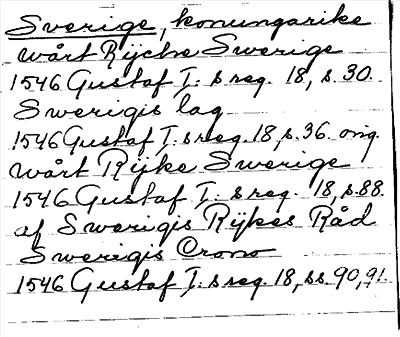 Sverige, konungarike
wårt Rijche Swerige
1546 Gustaf I:s reg. 18, s. 30.
Swerigis lag
1546 Gustaf I:s reg. 18, s. 36. orig.
wårt Rijke Swerige
1546 Gustaf I:s reg. 18, s. 88.
af Swerigis Rijkes Råd
Swerigis Crono
1546 Gustaf I:s reg. 18, ss. 90, 91.